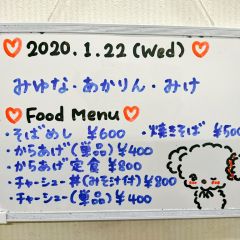 ♡ 2020.1.22(Wed) ♡
みゆな・あかりん・みけ
♡ Food Menu ♡
・そばめし ¥600 ・焼きそば ¥500
・からあげ(単品) ¥400
・からあげ定食 ¥800
・チャーシュー丼(みそ汁付) ¥800
・チャーシュー(単品) ¥400